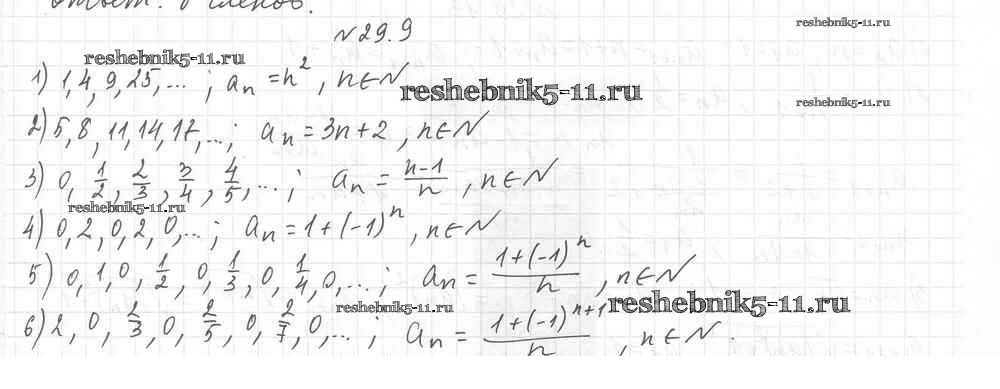 Ответ: 8 членов.
№29.9
reshebnik5-11.ru
reshebnik5-11.ru
1) 1, 4, 9, 25, ... ; aₙ = n², n∈N
reshebnik5-11.ru
reshebnik5-11.ru
2) 5, 8, 11, 14, 17, ...; aₙ = 3n+2, n∈N
3) 0, 1/2, 2/3, 3/4, 4/5, ... ; aₙ = (n-1)/n, n∈N
reshebnik5-11.ru
4) 0, 2, 0, 2, 0, ... ; aₙ = 1+(-1)ⁿ, n∈N
5) 0, 1, 0, 1/2, 0, 1/3, 0, 1/4, 0, ... ; aₙ = (1+(-1)ⁿ)/n, n∈N
reshebnik5-11.ru
reshebnik5-11.ru
6) 2, 0, 2/3, 0, 2/5, 0, 2/7, 0, ... ; aₙ = (1+(-1)ⁿ⁺¹)/n, n∈N.